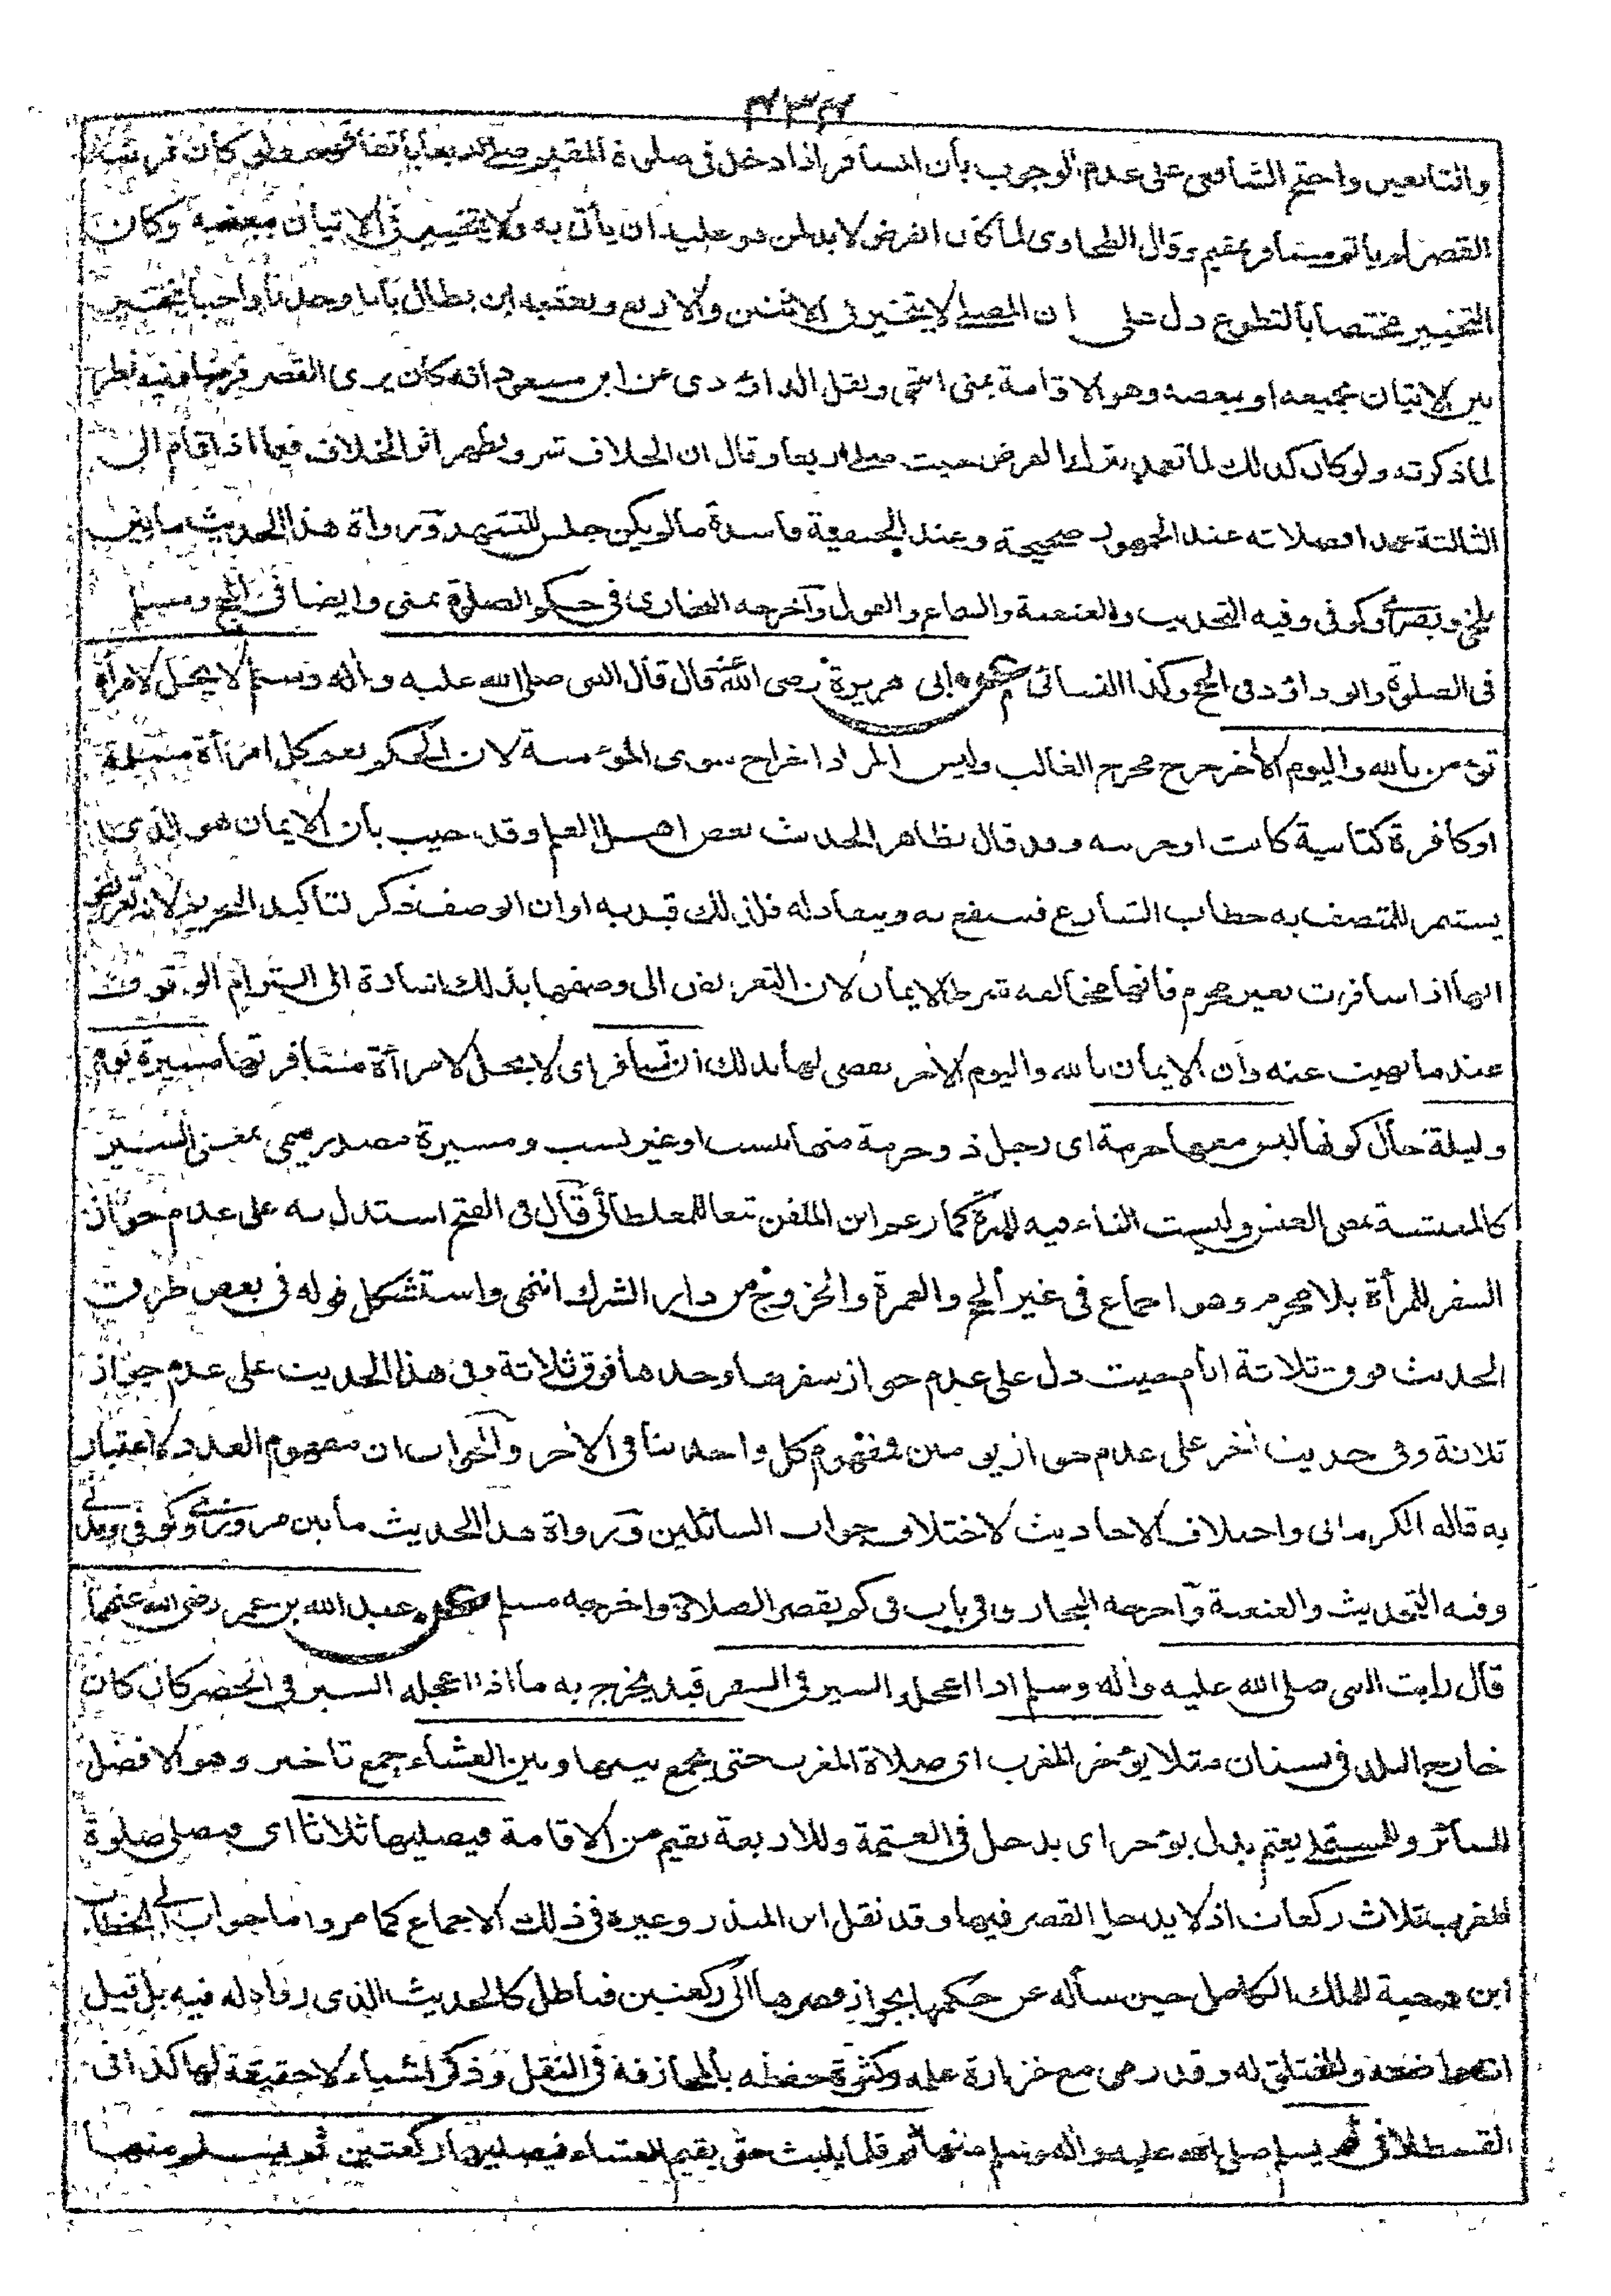 والتابعين واحتج الشافعي على عدم الوجوب بأن المسافر اذا دخل فى صلوة المقيم صلى اربعا باتفاقهم ولو كان فرضه
القصر لم يأتم مسافر بمقيم وقال الطحاوى لما كان الفرض لابد لمن هو عليه ان يأتى به ولا يتخير فى الاتيان ببعضه وكان
التخيير مختصا بالتطوع دل على ان المصلى لا يتخير فى الاثنين والاربع وتعقبه ابن بطال بأنا وجدنا واجبا يتخير
بين الاتيان بجميعه او ببعضه وهو الاقامة بمنى انتهى ونقل الداؤدى عن ابن مسعود انه كان يرى القصر فرضا وفيه نظر
لما ذكرته ولو كان كذلك لما تعمد بترك الفرض حيث صلى اربعا وقال ان الخلاف شر ويظهر اثر الخلاف فيما اذا قام الى
الثالثة عمدا فصلاته عند الجمهور صحيحة وعند الحنفية فاسدة ما لم يكن جلس للتشهد ورواة هذا الحديث ما بين
بلخى وبصرى وكوفى وفيه التحديث والعنعنة والسماع والقول وآخرجه البخارى فى حكم الصلوة بمنى وايضا فى الحج ومسلم
فى الصلوة وابوداؤد فى الحج وكذا النسائى عن ابى هريرة رضى الله عنه قال قال النبى صلى الله عليه وأله وسلم لا يحل لامرأة
تؤمن بالله واليوم الأخر خرج مخرج الغالب وليس المراد اخراج سوى المؤمنة لان الحكم يعم كل امرأة مسلمة
او كافرة كتابية كانت او حربية وقد قال بظاهر الحديث بعض اهل العلم وقد جيب بأن الايمان هو الذى
يستمر للمتصف به خطاب الشارع فينتفع به وينقاد له فلذلك قيد به او ان الوصف ذكر لتأكيد التحريم لانه تعريض
انها اذا سافرت بغير محرم فانها مخالفة شرط الايمان لان التعريض الى وصفها بذلك اشارة الى التزام الوقوف
عند ما نهيت عنه وأن الايمان بالله واليوم الأخر يقضى لها بذلك ان تسافر اى لا يحل لامرأة مسافرتها مسيرة يوم
وليلة حال كونها ليس معها حرمة اى رجل ذو حرمة منها بنسب او غير نسب ومسيرة مصدر ميمى بمعنى السير
كالمعيشة بمعنى العيش وليست التاء فيه للمرة كما زعم ابن الملقن تبعا للمغلطائى قال فى الفتح استدل به على عدم جواز
السفر للمرأة بلا محرم وهو اجماع فى غير الحج والعمرة والخروج من دار الشرك انتهى واستشكل قوله فى بعض طرق
الحديث فوق ثلاثة ايام حيث دل على عدم جواز سفرها وحدها فوق ثلاثة وفى هذا الحديث على عدم جواز
ثلاثة وفى حديث أخر على عدم جواز يومين فمفهوم كل واحد ينافى الأخر والجواب ان مفهوم العدد لا اعتبار
به قاله الكرمانى واختلاف الاحاديث لاختلاف جواب السائلين ورواة هذا الحديث ما بين مروزى وكوفى ومدنى
وفيه التحديث والعنعنة وآخرجه البخارى فى باب فى كم يقصر الصلاة واخرجه مسلم عن عبد الله بن عمر رضى الله عنهما
قال رايت النبى صلى الله عليه وأله وسلم اذا اعجله السير فى السفر قيد يخرج به ما اذا اعجله السير فى الحضر كان كان
خارج البلد فى بستان مثلا يؤخر المغرب اى صلاة المغرب حتى يجمع بينها وبين العشاء جمع تاخير وهو الافضل
للسائر وللمستملى يعتم بدل يؤخر اى يدخل فى العتمة وللاربعة يقيم من الاقامة فيصليها ثلاثا اى فيصلى صلوة
المغرب ثلاث ركعات اذ لا يدخل القصر فيها وقد نقل ابن المنذر وغيره فى ذلك الاجماع كما مر واما جواب ابى الخطاب
ابن دحية للملك الكامل حين سأله عن حكمها بجواز قصرها الى ركعتين فباطل كالحديث الذى رواه له فيه بل قيل
انه واضعه والمختلق له وقد رمى مع غزارة علمه وكثرة حفظه بالمجازفة فى النقل وذكر اشياء لا حقيقة لها كذا فى
القسطلانى ثم يسلم صلى الله عليه وأله وسلم منها ثم قلما يلبث حتى يقيم العشاء فيصليها ركعتين ثم يسلم منها